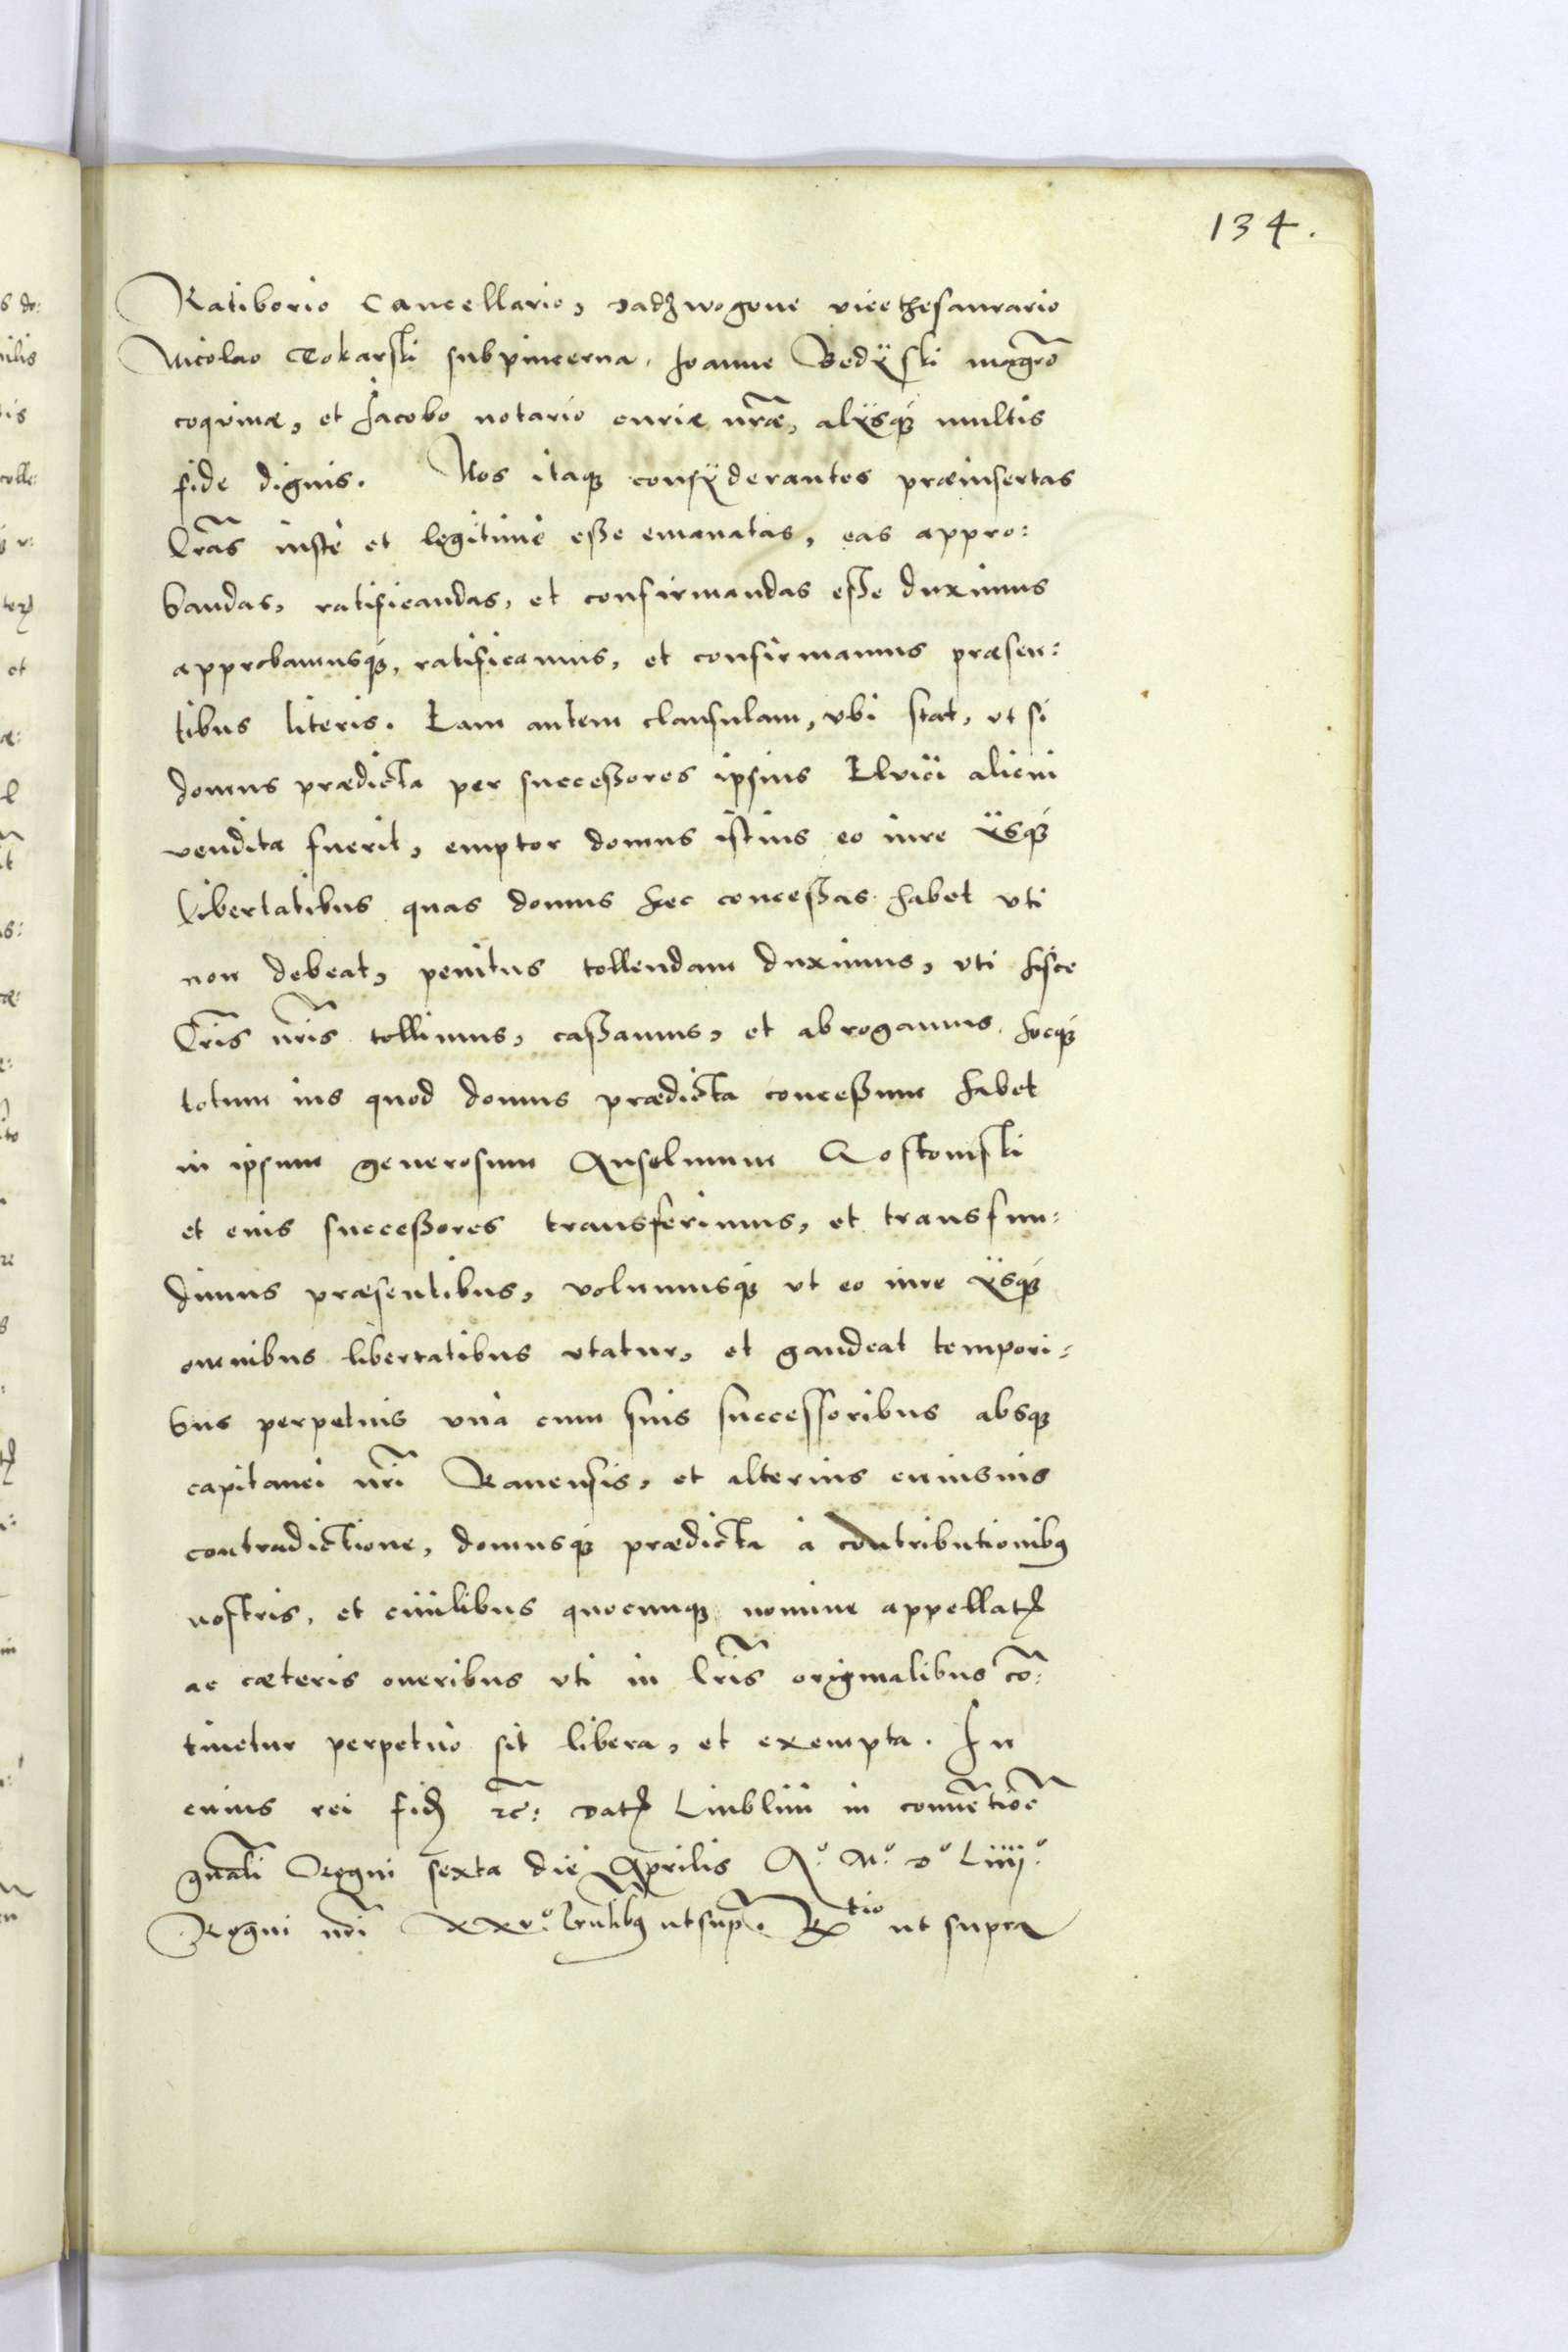 134.
Ratiborio Cancellario, Jadzwogone vicethesaurario
Nicolao Tokarski subpincerna, Joanne Bedÿski magr̃o
coquinæ, et Jacobo notario curiæ nr̃æ, alÿsq; multis
fide dignis. Nos itaq; consÿderantes præinsertas
lr̃as iustè et legitimè esse emanatas, eas appro:
bandas, ratificandas, et confirmandas esse duximus
approbamusq;, ratificamus, et confirmamus præsen:
tibus literis. Eam autem clausulam, vbi stat, vt si
domus prædicta per successores ipsius Elrici alicui
vendita fuerit, emptor domus istius eo iure ÿsq;
libertatibus quas domus hec concessas habet vti
non debeat, penitus tollendam duximus, vti hisce
lr̃is nr̃is tollimus, cassamus, et abrogamus, hocq;
totum ius quod domus prædicta concessum habet
in ipsum generosum Anselmum Gostomski
et eius successores transferimus, et transfun:
dimus præsentibus, volumusq; vt eo iure ÿsq;
omnibus libertatibus vtatur, et gaudeat tempori:
bus perpetuis vnà cum suis successoribus absq;
capitanei nr̃i Ravensis, et alterius cuiusuis
contradictione, domusq; prædicta à contributionibꝰ
nostris, et ciuilibus quocunq; nomine appellatꝭ
ac cæteris oneribus vti in lr̃is originalibus cõ:
tinetur perpetuò sit libera, et exempta. In
cuius rei fidꝫ ꝛc̃: Datꝭ Liublini in conuẽtioẽ
gñali Regni sexta die Aprilis A.º M.º D.º Liiij.º
Regni nr̃i xxv.º pr̃ntibꝰ ut supr̃. R^tio ut supra